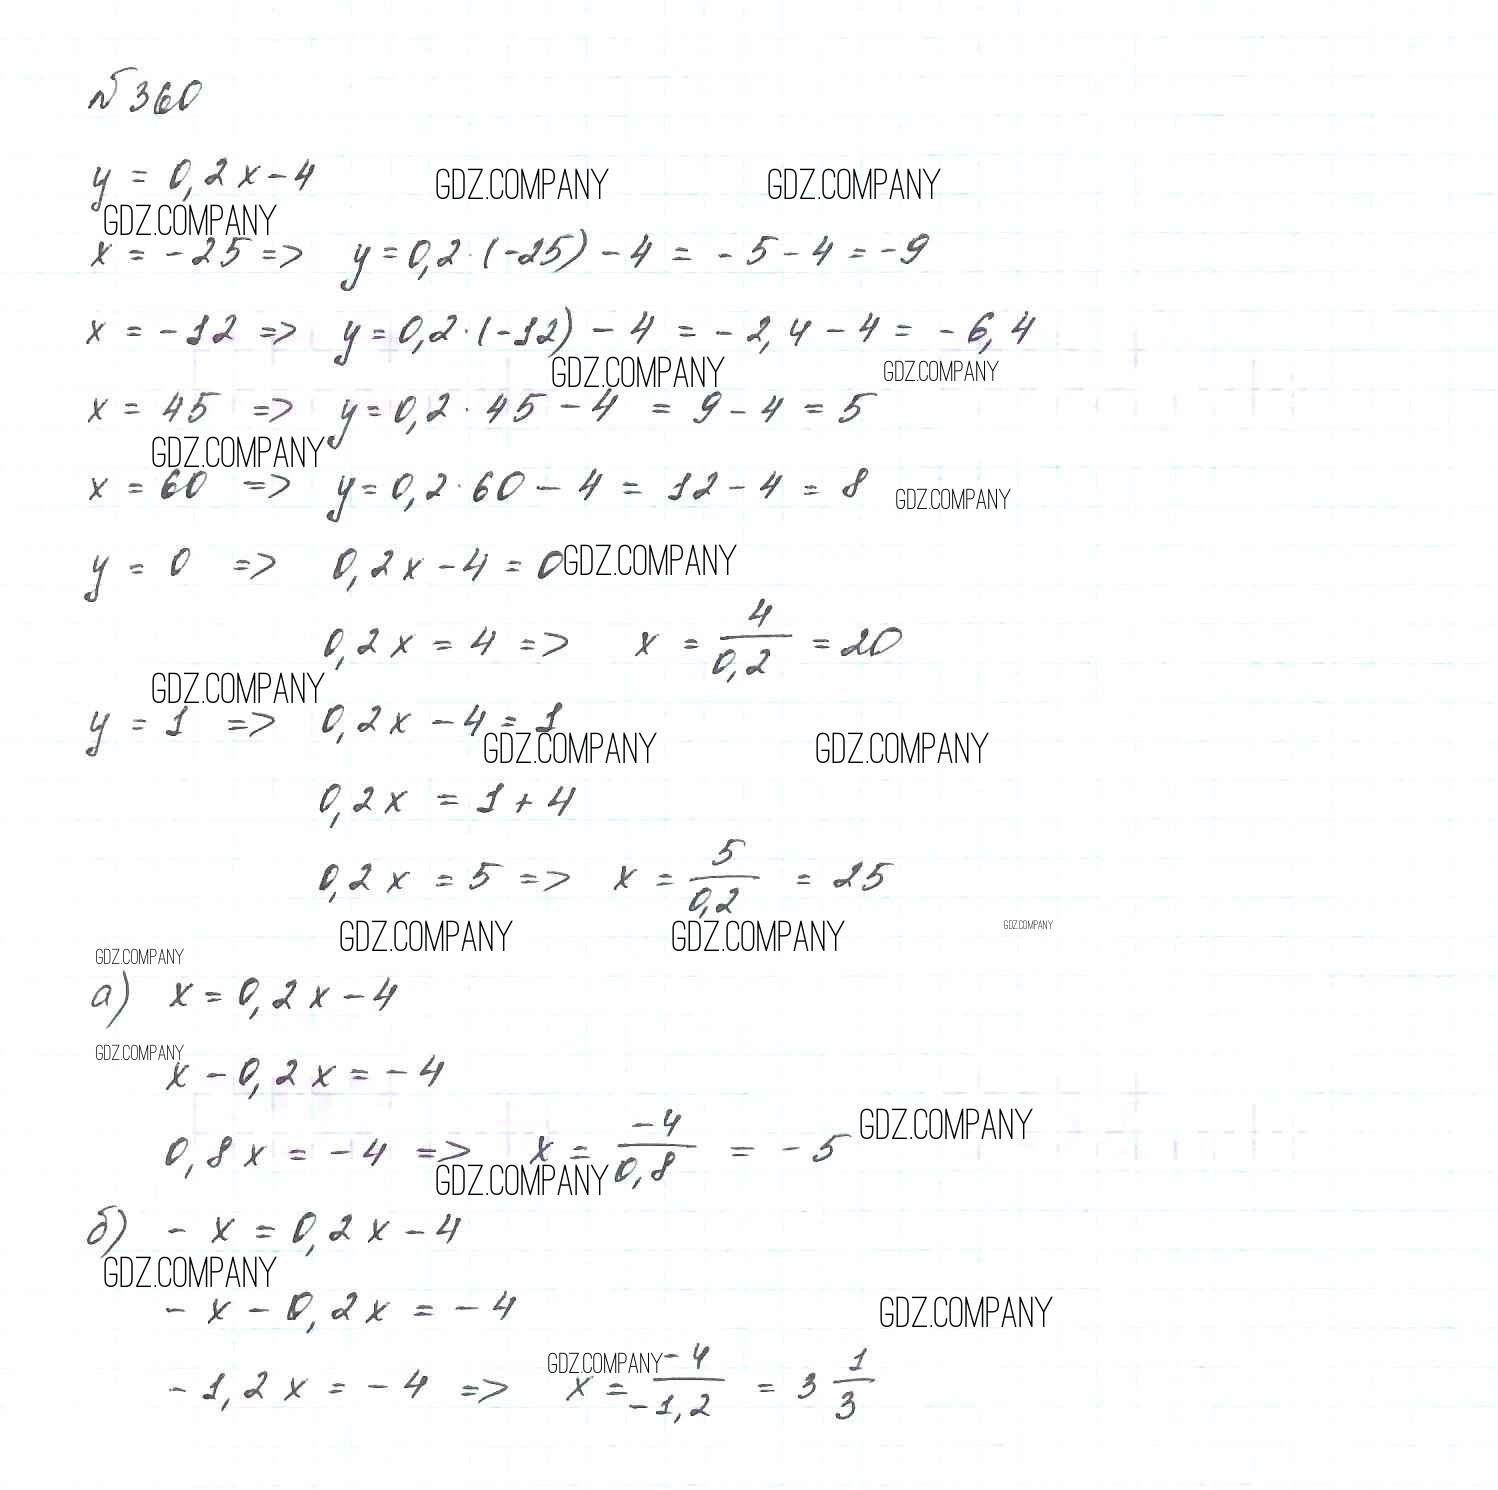 №360
y = 0,2x - 4
GDZ.COMPANY GDZ.COMPANY
GDZ.COMPANY
x = -25 => y = 0,2 · (-25) - 4 = -5 - 4 = -9
x = -12 => y = 0,2 · (-12) - 4 = -2,4 - 4 = -6,4
GDZ.COMPANY GDZ.COMPANY
x = 45 => y = 0,2 · 45 - 4 = 9 - 4 = 5
GDZ.COMPANY
x = 60 => y = 0,2 · 60 - 4 = 12 - 4 = 8
GDZ.COMPANY
y = 0 => 0,2x - 4 = 0
GDZ.COMPANY
0,2x = 4 => x = 4/0,2 = 20
GDZ.COMPANY
y = 1 => 0,2x - 4 = 1
GDZ.COMPANY GDZ.COMPANY
0,2x = 1 + 4
0,2x = 5 => x = 5/0,2 = 25
GDZ.COMPANY GDZ.COMPANY GDZ.COMPANY
GDZ.COMPANY
а) x = 0,2x - 4
GDZ.COMPANY
x - 0,2x = -4
0,8x = -4 => x = -4/0,8 = -5
GDZ.COMPANY
GDZ.COMPANY
б) -x = 0,2x - 4
GDZ.COMPANY
-x - 0,2x = -4
GDZ.COMPANY
GDZ.COMPANY
-1,2x = -4 => x = -4/-1,2 = 3 1/3